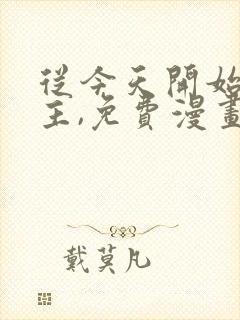 從今天開始
主,免費漫畫
戴莫凡